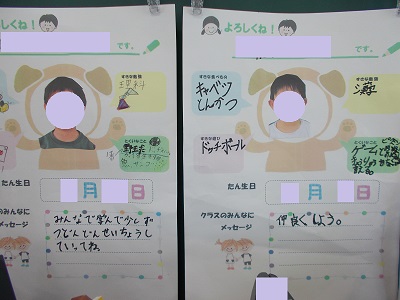 よろしくね!
です。
すきな教科
理科
とくいなこと
野球
たん生日
月
日
クラスのみんなに
メッセージ
みんなで学んで少しず
つどんどんせいちょうし
ていってね。
よろしくね!
です。
すきな食べもの
キャベツ
とんかつ
すきな教科
すきな遊び
ドッチボール
とくいなこと
たん生日
月
日
クラスのみんなに
メッセージ
仲良くしよう。